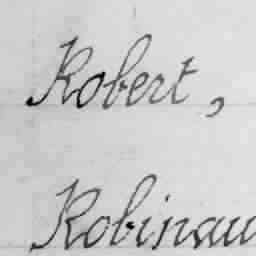 Robert,
Robinau